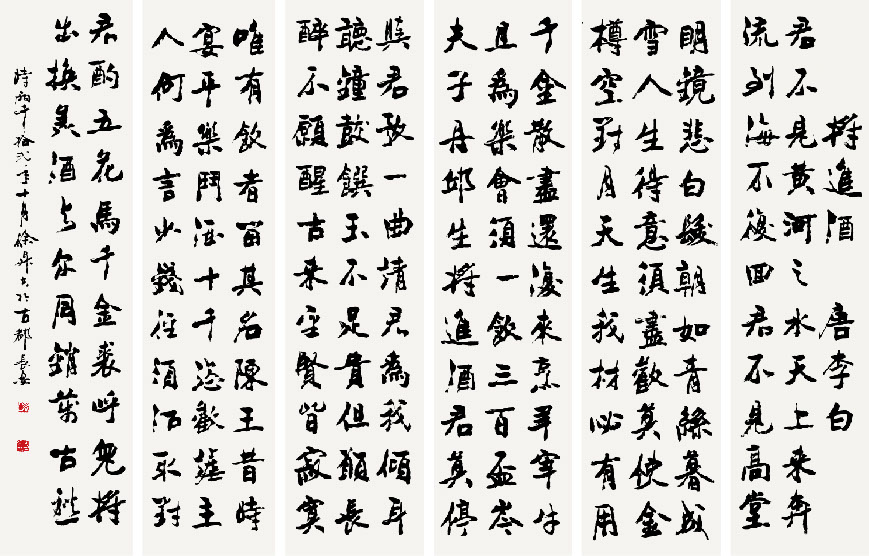 將進酒 唐李白
君不見黃河之水天上来奔
流到海不復回君不見高堂
明鏡悲白髮朝如青絲暮成
雪人生得意須盡歡莫使金
樽空對月天生我材必有用
千金散盡還復來烹羊宰牛
且為樂會須一飲三百盃岑
夫子丹邱生將進酒君莫停
與君歌一曲請君為我傾耳
聽鐘鼓饌玉不足貴但願長
醉不願醒古来聖賢皆寂寞
唯有飲者留其名陳王昔時
宴平樂鬥酒十千恣歡謔主
人何為言少錢徑須沽取對
君酌五花馬千金裘呼兒將
出換美酒与尔同銷萬古愁
時兩千拾弍年十月徐書於古都長安